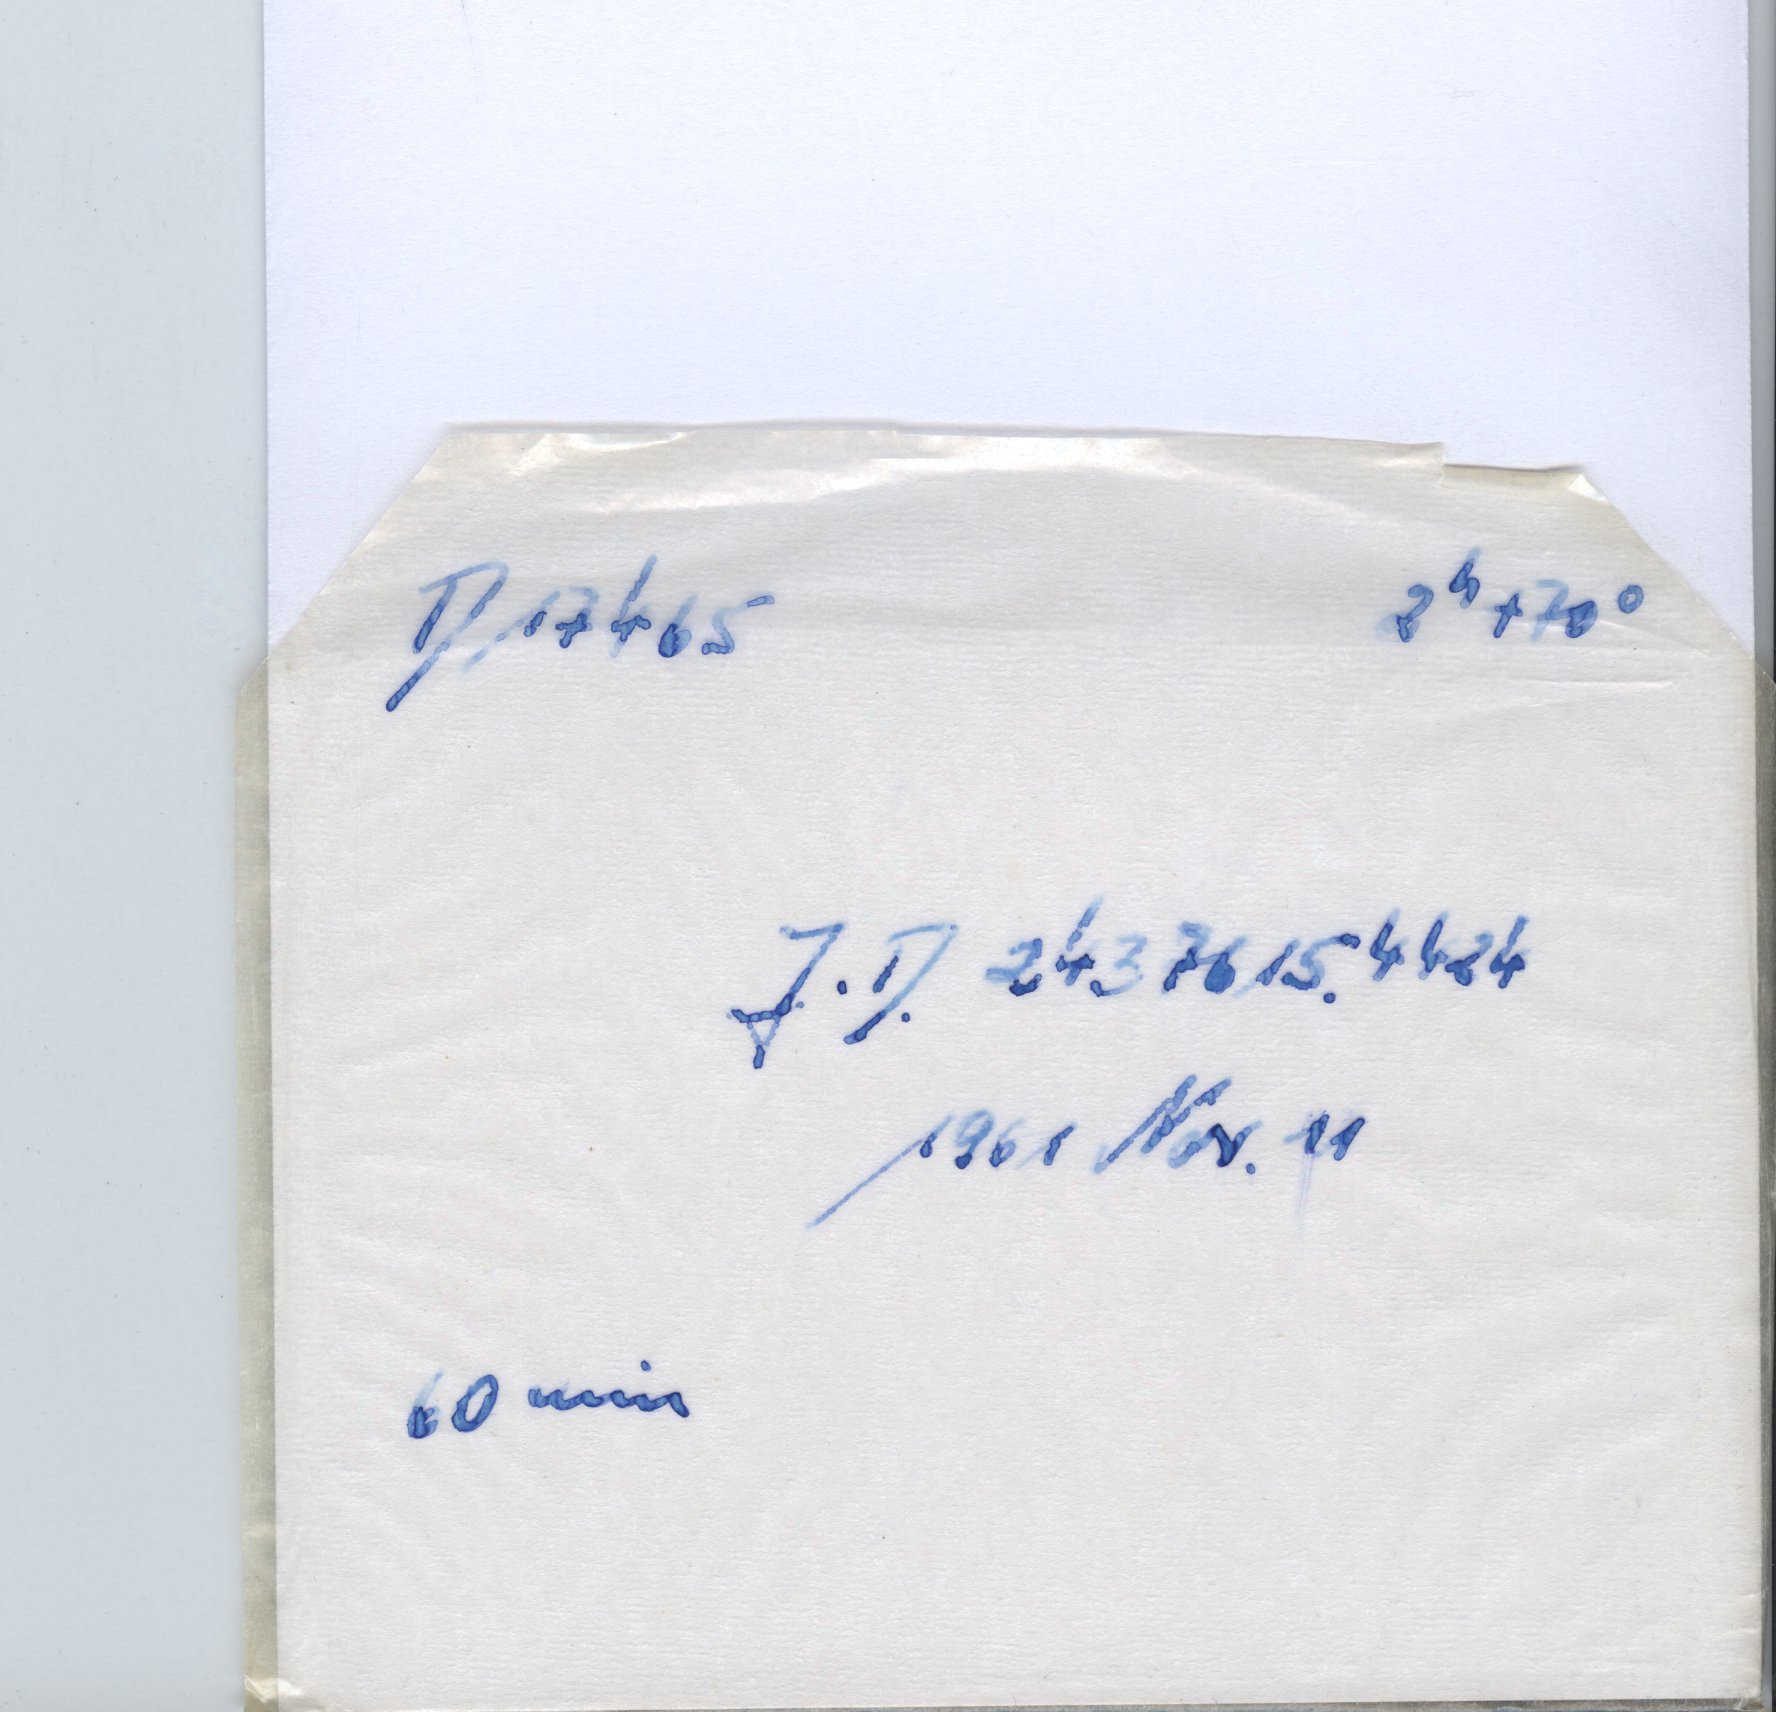 D 17465 2ʰ+70°
J.D. 2437615.4424
1961 Nov. 11
60 min